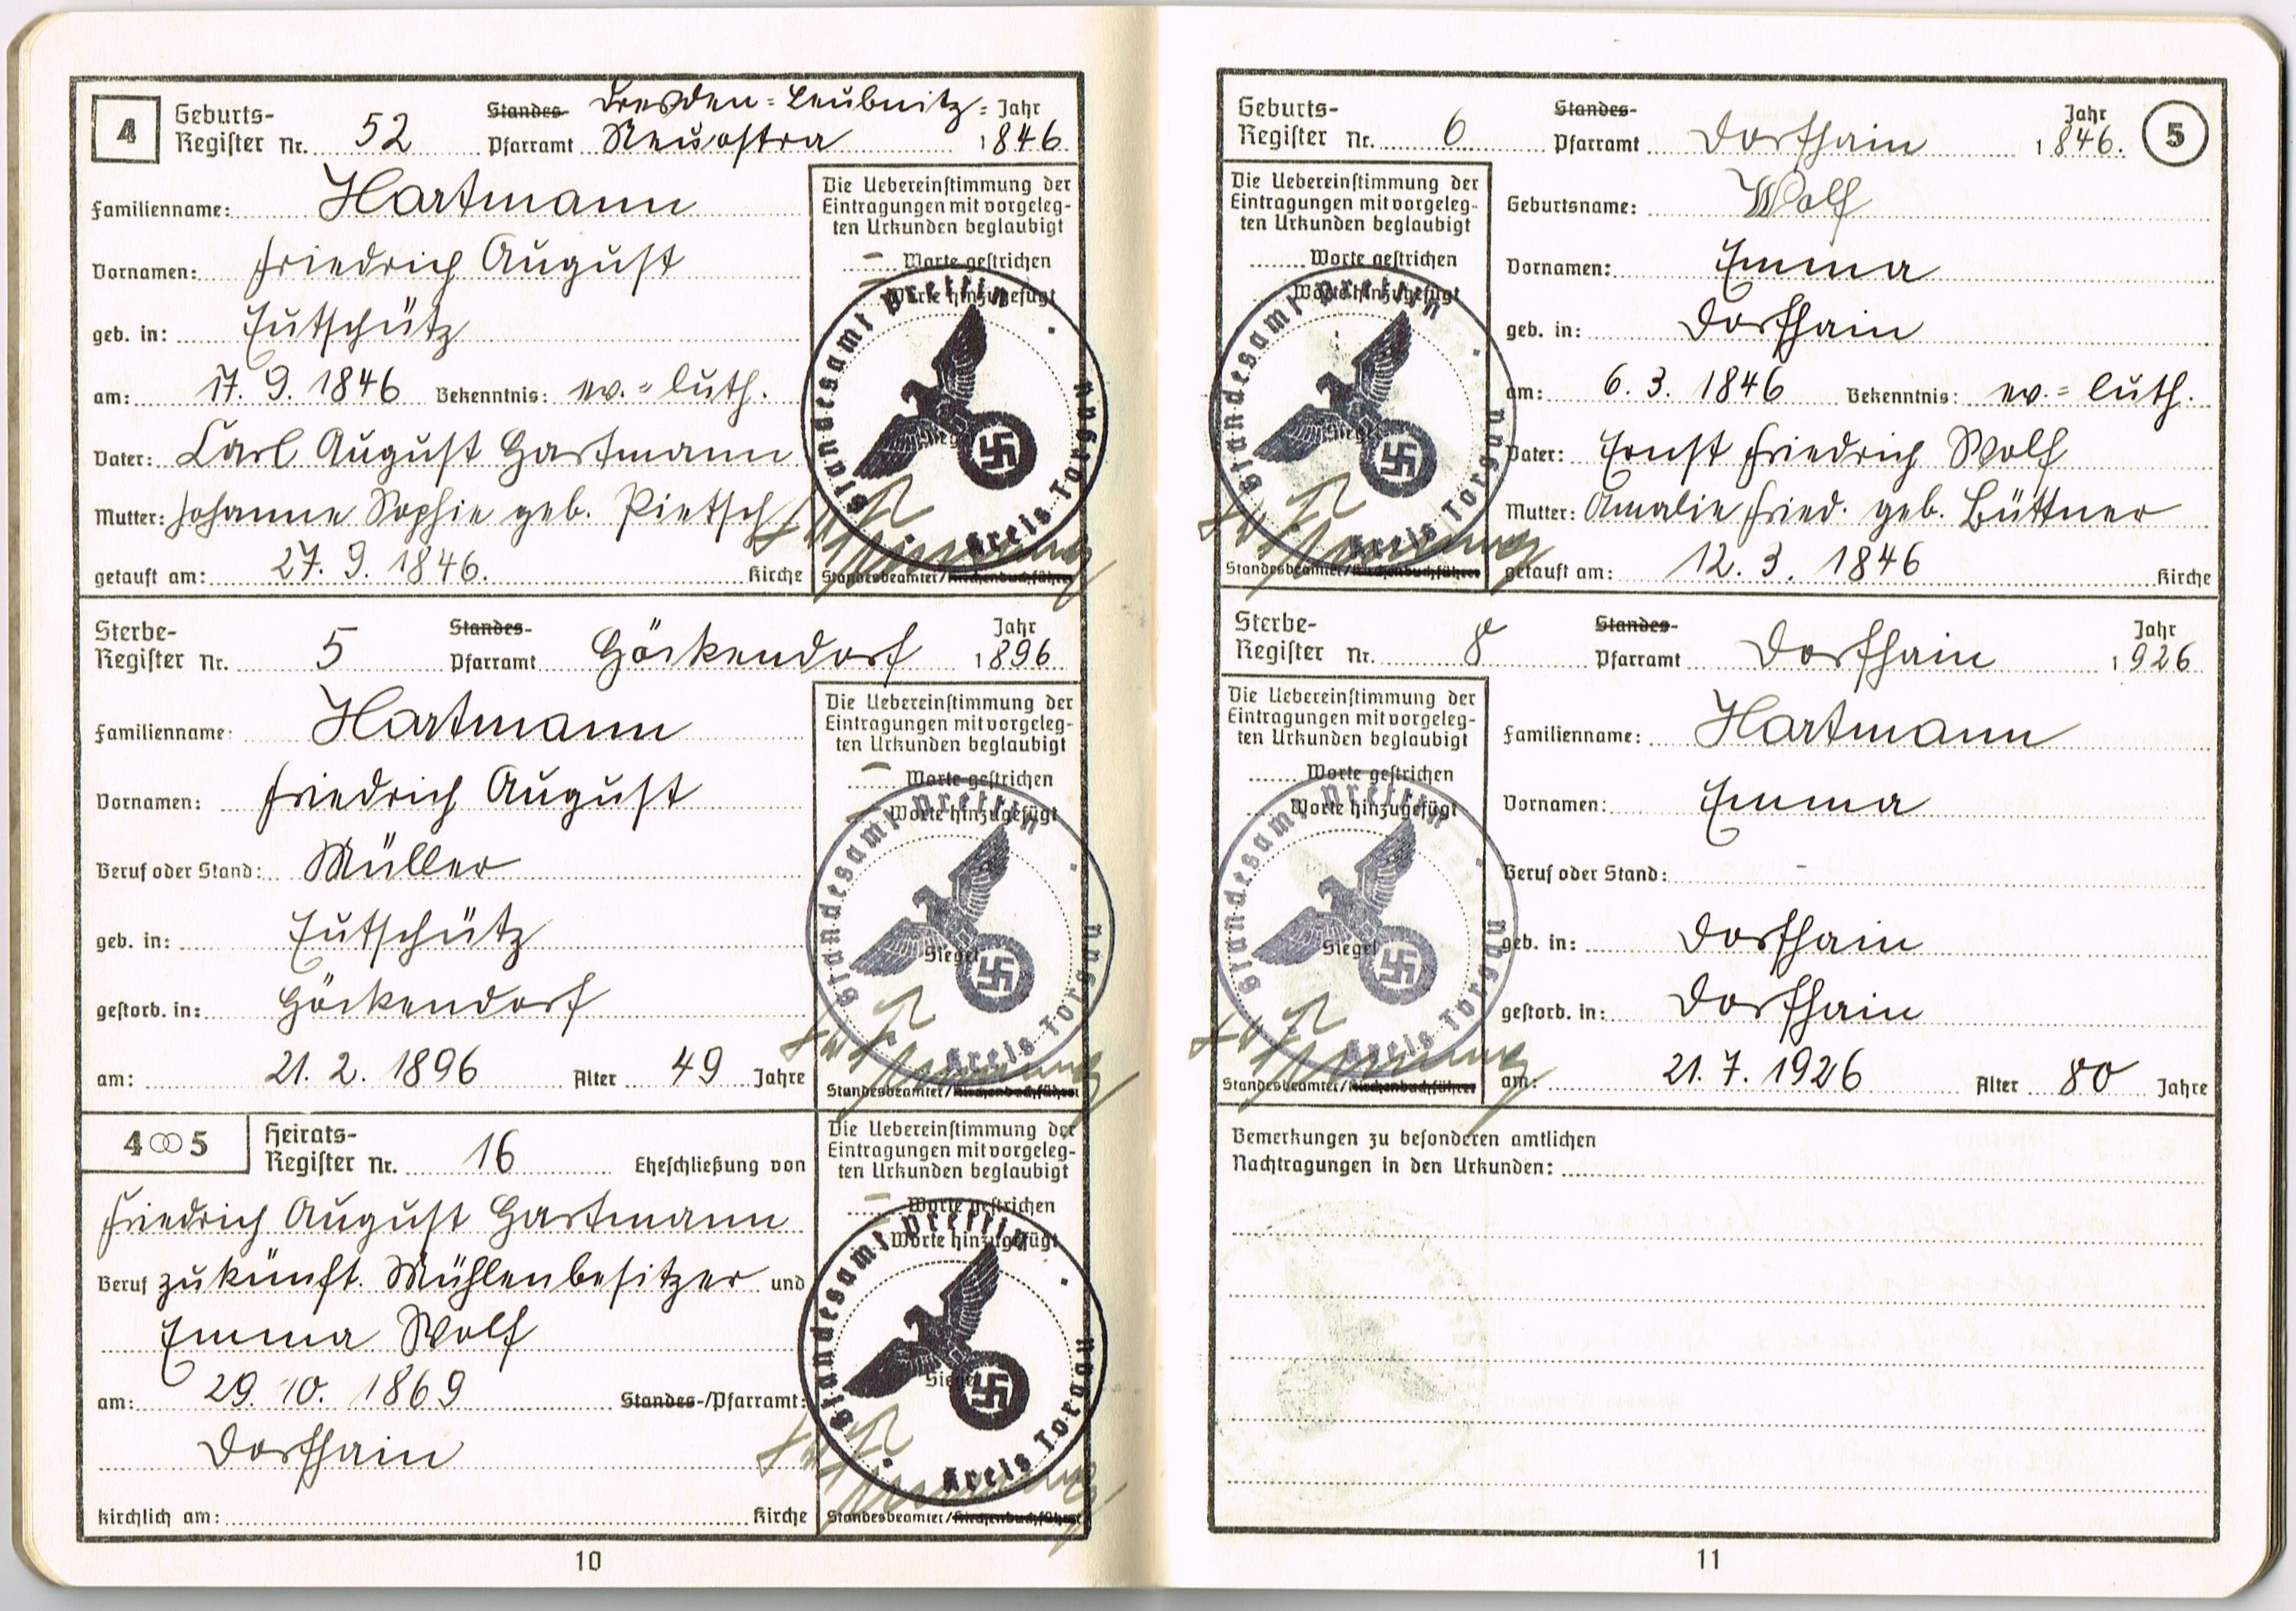 4
Geburts-
Register Nr. 52 Standes- Dresden-Leubnitz- Jahr
Pfarramt Neuostra 1846.
Familienname: Hartmann
Vornamen: Friedrich August
geb. in: Eutschütz
am: 17. 9. 1846 Bekenntnis: ev.-luth.
Vater: Carl August Hartmann
Mutter: Johanne Sophie geb. Pietsch
getauft am: 27. 9. 1846. Kirche
Die Uebereinstimmung der
Eintragungen mit vorgeleg-
ten Urkunden beglaubigt
– Worte gestrichen
– Worte hinzugefügt
Siegel
Standesamt Prettin
Kreis Torgau
Standesbeamter/Kirchenbuchführer
Sterbe-
Register Nr. 5 Standes-
Pfarramt Höckendorf Jahr
1896
Familienname: Hartmann
Vornamen: Friedrich August
Beruf oder Stand: Müller
geb. in: Eutschütz
gestorb. in: Höckendorf
am: 21. 2. 1896 Alter 49 Jahre
Die Uebereinstimmung der
Eintragungen mit vorgeleg-
ten Urkunden beglaubigt
– Worte gestrichen
– Worte hinzugefügt
Siegel
Standesamt Prettin
Kreis Torgau
Standesbeamter/Kirchenbuchführer
4 ∞ 5
Heirats-
Register Nr. 16 Eheschließung von
Friedrich August Hartmann
Beruf zukünft. Mühlenbesitzer und
Emma Wolf
am: 29. 10. 1869 Standes-/Pfarramt:
Dorfhain
kirchlich am: Kirche
Die Uebereinstimmung der
Eintragungen mit vorgeleg-
ten Urkunden beglaubigt
– Worte gestrichen
Worte hinzugefügt
Siegel
Standesamt Prettin
Kreis Torgau
Standesbeamter/Kirchenbuchführer
10
Geburts-
Register Nr. 6 Standes-
Pfarramt Dorfhain Jahr
1846.
5
Die Uebereinstimmung der
Eintragungen mit vorgeleg-
ten Urkunden beglaubigt
Worte gestrichen
Worte hinzugefügt
Siegel
Standesamt Prettin
Kreis Torgau
Standesbeamter/Kirchenbuchführer
Geburtsname: Wolf
Vornamen: Emma
geb. in: Dorfhain
am: 6. 3. 1846 Bekenntnis: ev.-luth.
Vater: Ernst Friedrich Wolf
Mutter: Amalie Fried. geb. Büttner
getauft am: 12. 3. 1846 Kirche
Sterbe-
Register Nr. 8 Standes-
Pfarramt Dorfhain Jahr
1926
Die Uebereinstimmung der
Eintragungen mit vorgeleg-
ten Urkunden beglaubigt
Worte gestrichen
Worte hinzugefügt
Siegel
Standesamt Prettin
Kreis Torgau
Standesbeamter/Kirchenbuchführer
Familienname: Hartmann
Vornamen: Emma
Beruf oder Stand: –
geb. in: Dorfhain
gestorb. in: Dorfhain
am: 21. 7. 1926 Alter 80 Jahre
Bemerkungen zu besonderen amtlichen
Nachtragungen in den Urkunden:
11